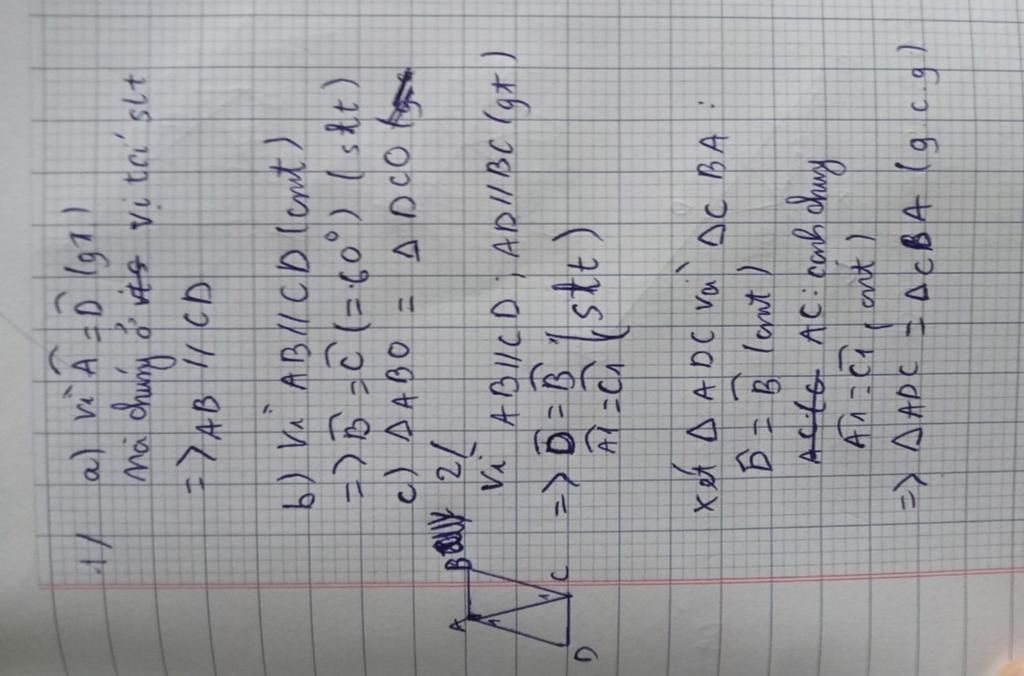 1/ a) vì Â = D̂ (gt)
mà chúng ở vị trí slt
=> AB // CD
b) Vì AB // CD (cmt)
=> B̂ = Ĉ (= 60°) (slt)
c) Δ ABO = Δ DCO
2/
Vì AB // CD ; AD // BC (gt)
=> D̂ = B̂
Â1 = Ĉ1 (slt)
Xét Δ ADC và Δ CBA :
D̂ = B̂ (cmt)
AC : cạnh chung
Â1 = Ĉ1 (cmt)
=> Δ ADC = Δ CBA (g.c.g)
A B
1
1
D C